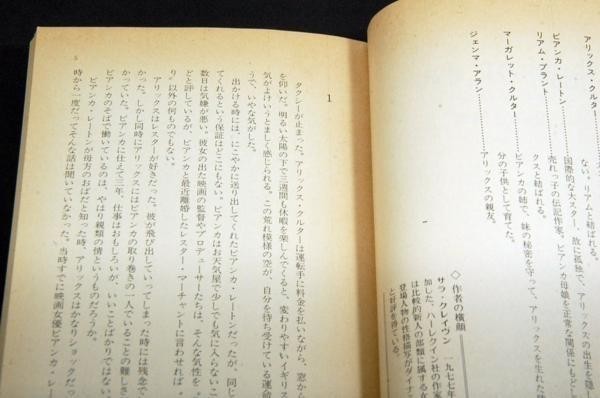 アリックス・クルター………
ない。リアムと結ばれる。
ビアンカ・レートン………
国際的な大スター。故に孤独で、アリックスの出生を隠し
リアム・ブラント………
売れっ子の伝記作家。ビアンカ母娘を正常な関係にもど
クスと結ばれる。
マーガレット・クルター………
ビアンカの姉で、妹の秘密を守って、アリックスを生れた時
分の子供として育てた。
ジェンマ・アラン………
アリックスの親友。
◇作者の横顔
サラ・クレイヴン　一九七七年
加した、ハーレクイン社の作家
は比較的新人の部類に属する女
登場人物の性格描写がダイナ
と好評を得ている。
5
1
タクシーが止まった。アリックス・クルターは運転手に料金を払いながら、窓から
を仰いだ。明るい太陽の下で三週間も休暇を楽しんでくると、変わりやすいイギリス
気がよけいうとましく感じられる。この荒れ模様の空が、自分を待ち受けている運命
うで、いやな気がした。
出かける時には、にこやかに送り出してくれたビアンカ・レートンだったが、同じ
てくれるという保証はどこにもない。ビアンカはお天気屋で少しでも気に入らないこ
数日は気嫌が悪い。彼女の出た映画の監督やプロデューサーたちは、そんな気性を〝
どと評しているが、ビアンカと最近離婚したレスター・マーチャントに言わせれば〝
り〟以外の何ものでもない。
アリックスはレスターが好きだった。彼が飛び出していってしまった時には残念で
かった。しかし同時にアリックスにはビアンカの取り巻きの一人でいることの難しさ
かっていた。ビアンカに仕えて三年、仕事はおもしろいが、いいことばかりではない
ビアンカのそばで働いているのは、やはり親類の情というものだろうか。
ビアンカ・レートンが母方のおばだと知った時、アリックスはかなりショックだった
時から一度だってそんな話は聞いていなかった。当時すでに映画女優ビアンカ・レー